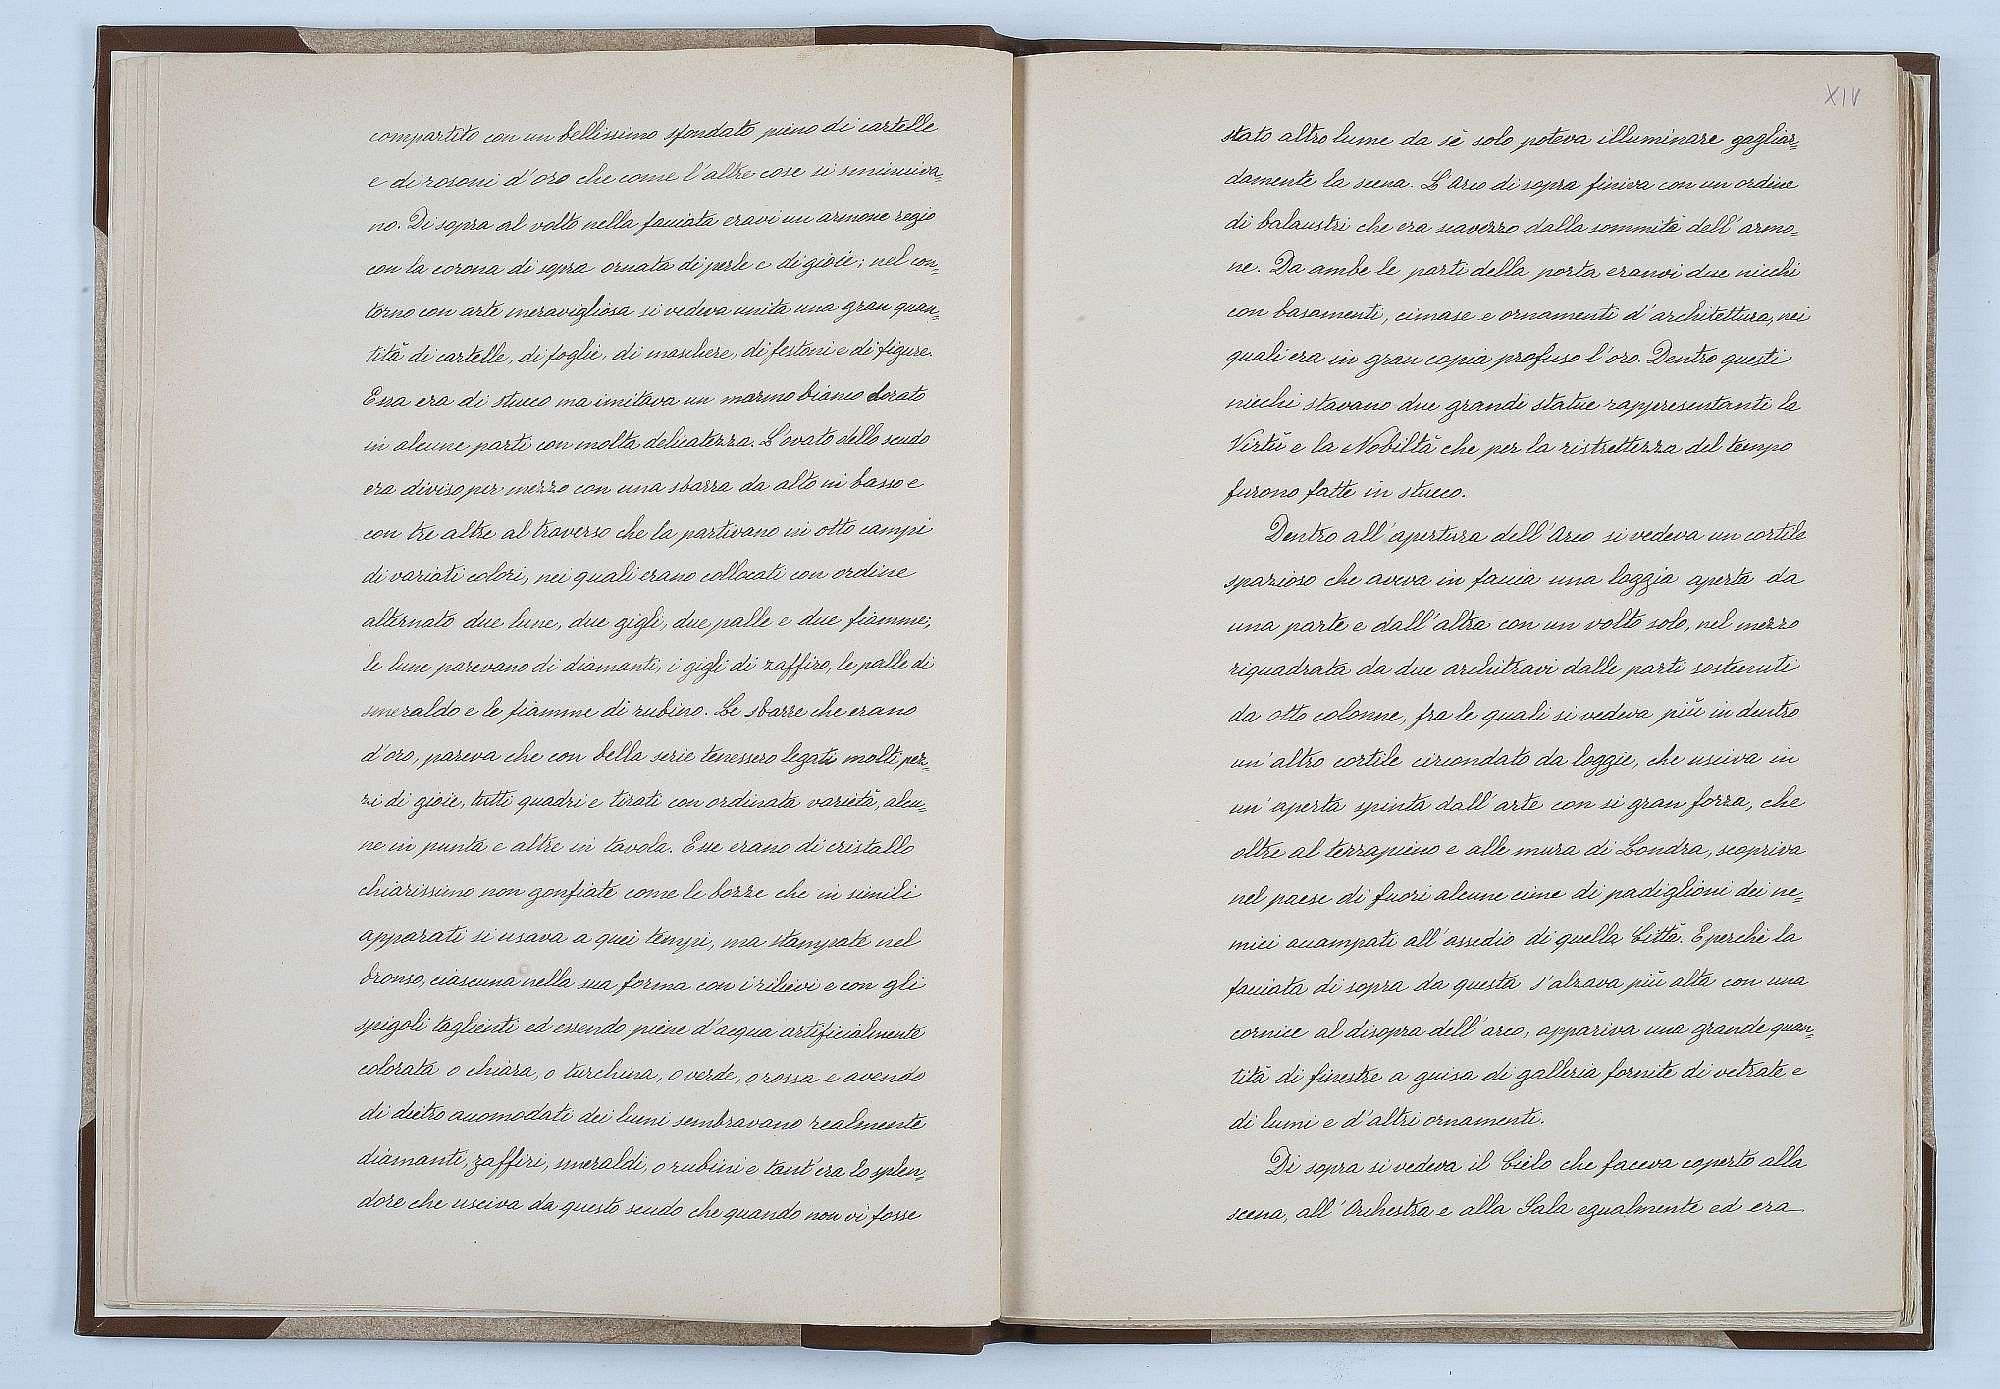 compartito con un bellissimo sfondato pieno di cartelle
e di rosoni d'oro che come l'altre cose si sminuiva-
no. Di sopra al volto nella facciata eravi un armone regio
con la corona di sopra ornata di perle e di gioie; nel con-
torno con arte meravigliosa si vedeva unita una gran quan-
tità di cartelle, di foglie, di maschere, di festoni e di figure.
Essa era di stucco ma imitava un marmo bianco dorato
in alcune parti con molta delicatezza. L'ovato dello scudo
era diviso per mezzo con una sbarra da alto in basso e
con tre altre al traverso che la partivano in otto campi
di variati colori, nei quali erano collocati con ordine
alternato due lune, due gigli, due palle e due fiamme;
le lune parevano di diamanti, i gigli di zaffiro, le palle di
smeraldo e le fiamme di rubino. Le sbarre che erano
d'oro, pareva che con bella serie tenessero legati molti pez-
zi di gioie, tutti quadri e tirati con ordinata varietà, alcu-
ne in punta e altre in tavola. Esse erano di cristallo
chiarissimo non gonfiate come le bozze che in simili
apparati si usava a quei tempi, ma stampate nel
bronso, ciascuna nella sua forma con i rilievi e con gli
spigoli taglienti ed essendo piene d'acqua artificialmente
colorata o chiara, o turchina, o verde, o rossa e avendo
di dietro accomodati dei lumi sembravano realmente
diamanti, zaffiri, smeraldi, o rubini e tant'era lo splen-
dore che usciva da questo scudo che quando non vi fosse
XIV
stato altro lume da sè solo poteva illuminare gagliar-
damente la scena. L'Arco di sopra finiva con un ordine
di balaustri che era scavezzo dalla sommità dell'armo-
ne. Da ambe le parti della porta eranvi due nicchi
con basamenti, cimase e ornamenti d'architettura, nei
quali era in gran copia profuso l'oro. Dentro questi
nicchi stavano due grandi statue rappresentanti la
Virtù e la Nobiltà che per la ristrettezza del tempo
furono fatte in stucco.
Dentro all'apertura dell'Arco si vedeva un cortile
spazioso che aveva in faccia una loggia aperta da
una parte e dall'altra con un volto solo, nel mezzo
riquadrata da due architravi dalle parti sostenuti
da otto colonne, fra le quali si vedeva più in dentro
un'altro cortile circondato da loggie, che usciva in
un'aperta spinta dall'arte con si gran forza, che
oltre al terrapieno e alle mura di Londra, scopriva
nel paese di fuori alcune cime di padiglioni dei ne-
mici accampati all'assedio di quella Città. E perchè la
facciata di sopra da questa s'alzava più alta con una
cornice al disopra dell'arco, appariva una grande quan-
tità di finestre a guisa di galleria fornite di vetrate e
di lumi e d'altri ornamenti.
Di sopra si vedeva il Cielo che faceva coperto alla
scena, all'Orchestra e alla Sala egualmente ed era